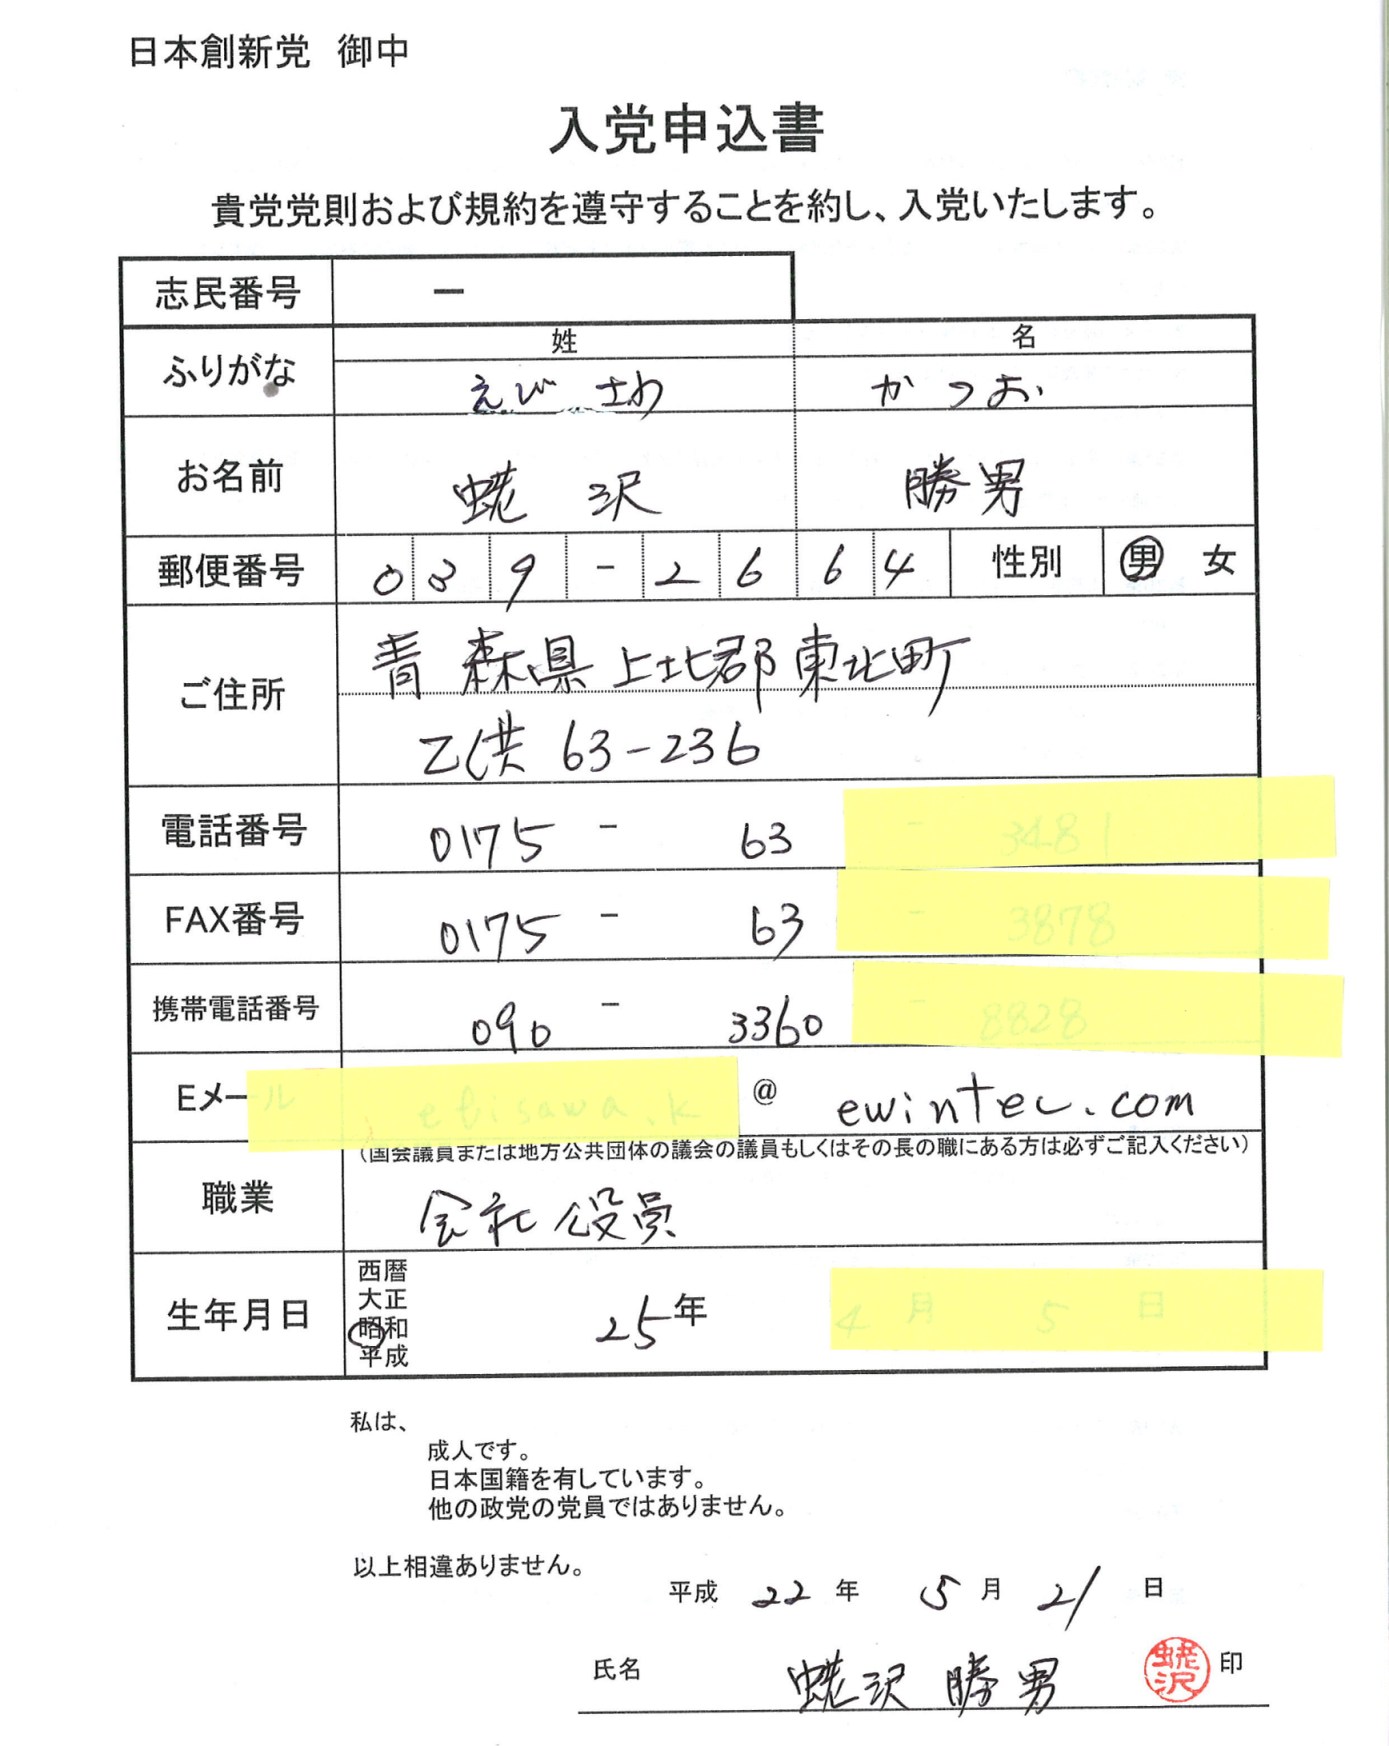 日本創新党 御中
入党申込書
貴党党則および規約を遵守することを約し、入党いたします。
志民番号 ー
姓 名
ふりがな えび さわ かつお
お名前 蛯 沢 勝男
郵便番号 039-2664 性別 男 女
ご住所 青森県上北郡東北町
乙供 63-236
電話番号 0175 - 63
FAX番号 0175 - 63
携帯電話番号 090 - 3360
Eメール @ ewintec.com
(国会議員または地方公共団体の議会の議員もしくはその長の職にある方は必ずご記入ください)
職業 会社役員
西暦
大正
生年月日 昭和 25年
平成
私は、
成人です。
日本国籍を有しています。
他の政党の党員ではありません。
以上相違ありません。
平成 22 年 5 月 21 日
氏名 蛯沢 勝男 蛯沢 印